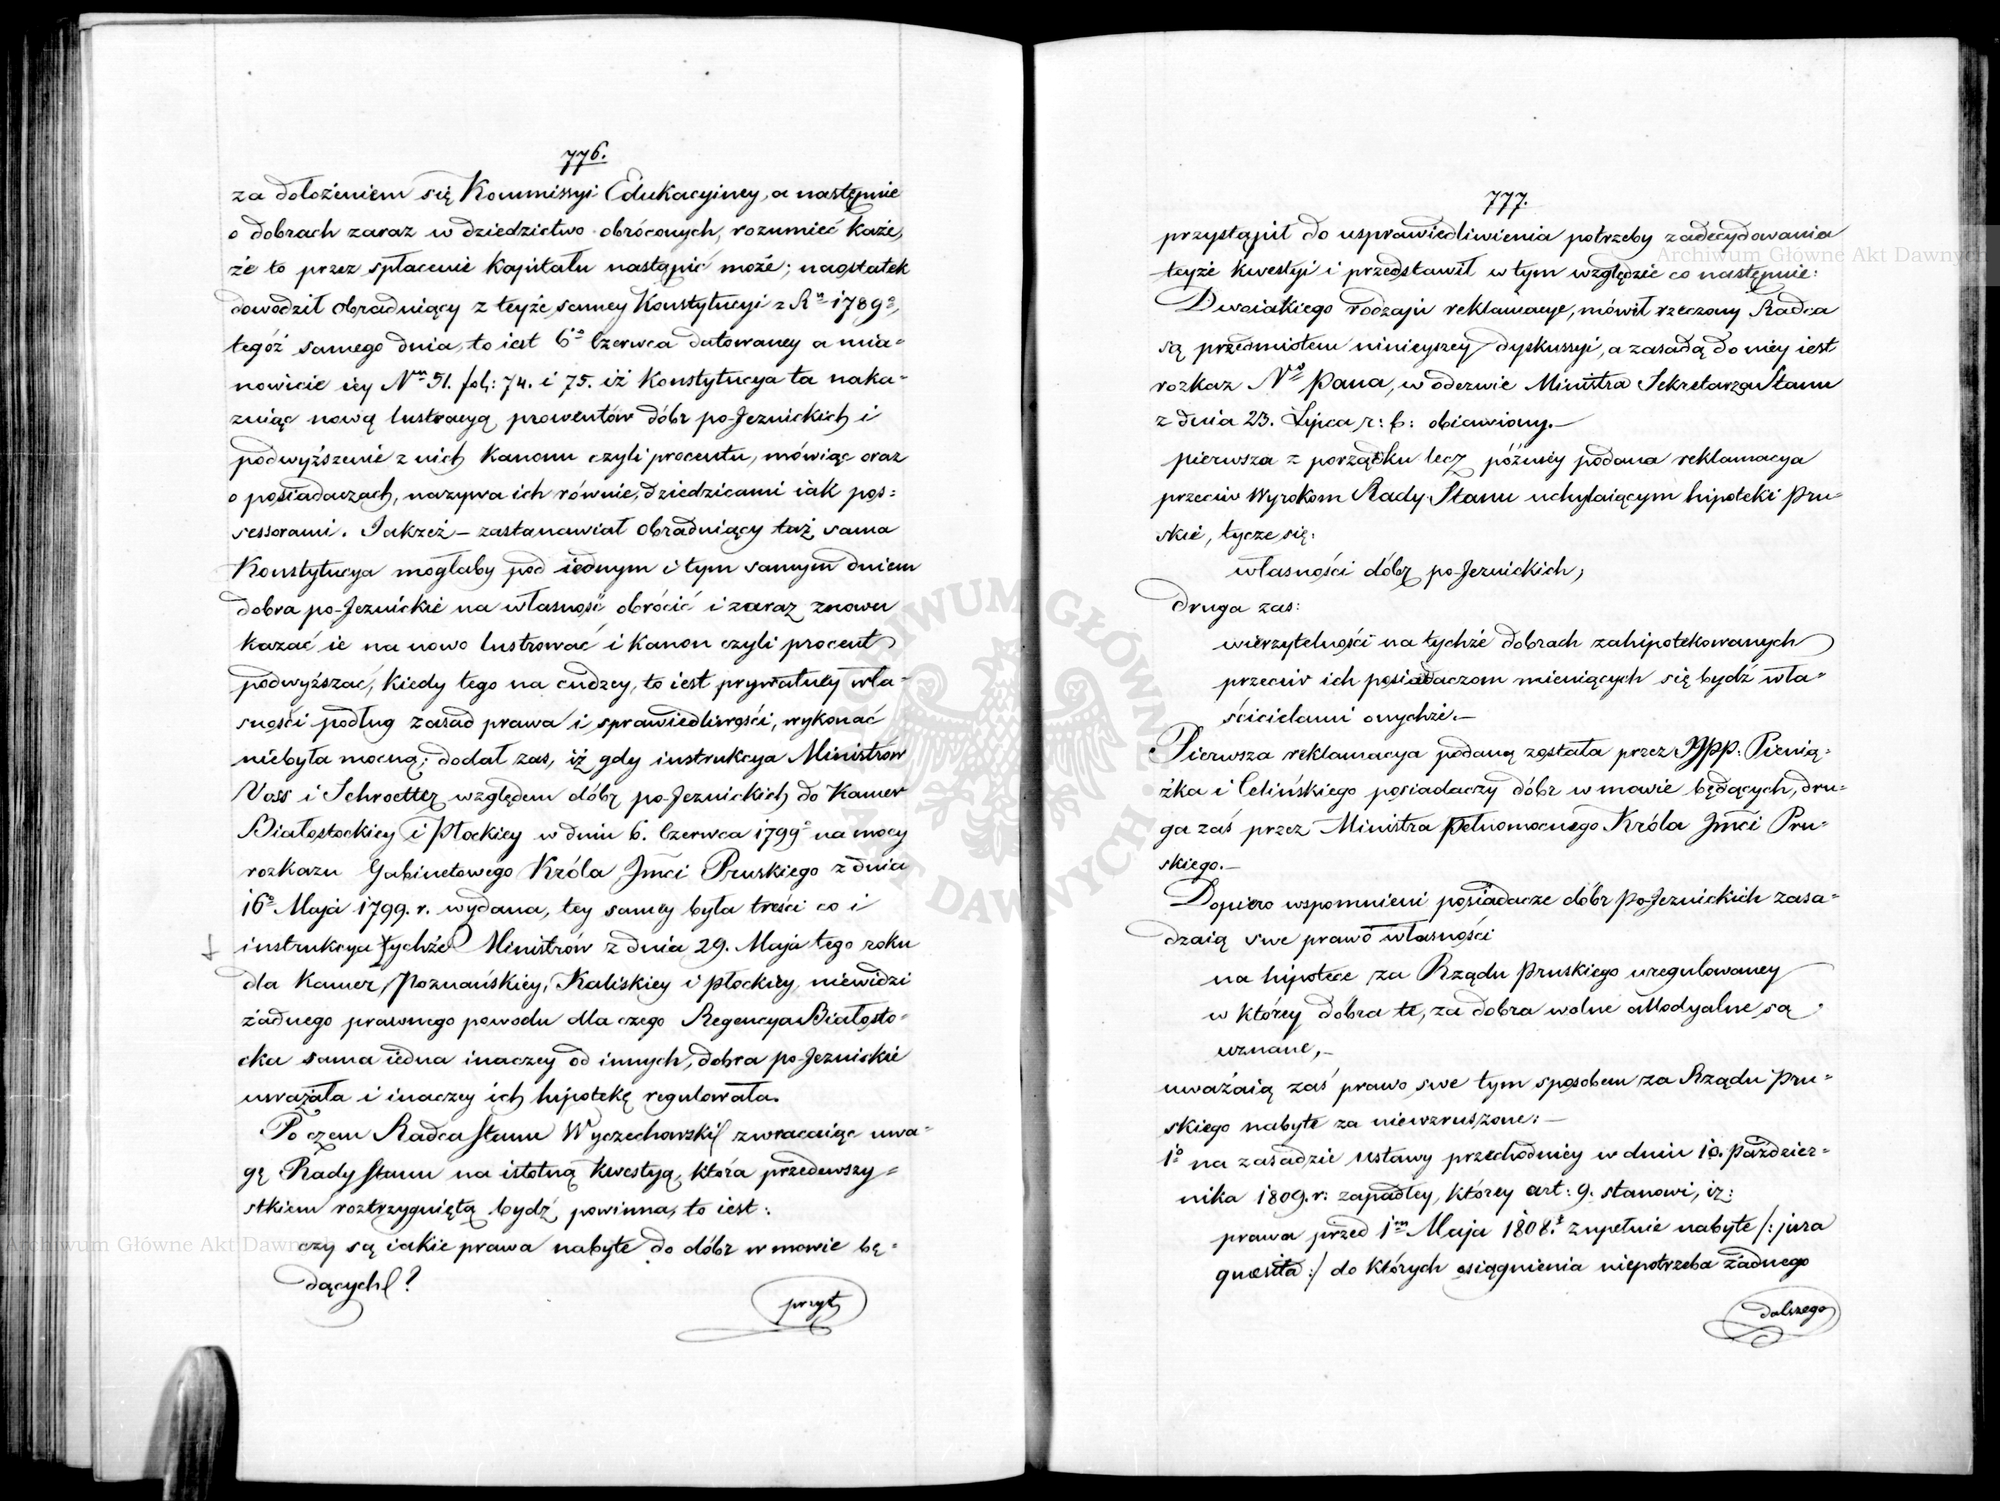 776.
za dołożeniem się Kommissyi Edukacyiney, a następnie
o dobrach zaraz w dziedzictwo obróconych, rozumieć każe,
że to przez spłacenie kapitału nastąpić może; naostatek
dowodził obraduiący z teyże samey Konstytucyi z Ru 1789o,
tegóż samego dnia, to iest 6o Czerwca datowaney a mia-
nowicie iey Nrm 51. fol: 74. i 75. iż Konstytucya ta naka-
zuiąc nową lustracyą prowentów dóbr po-Jezuickich i
podwyższenie z nich Kanonu czyli procentu, mówiąc oraz
o posiadaczach, nazywa ich równie, dziedzicami iak pos-
sessorami. Jakżeż – zastanawiał obraduiący taż sama
Konstytucya mogłaby pod iednym i tym samym dniem
dobra po-Jezuickie na własność obrócić i zaraz znowu
kazać ie na nowo lustrować i kanon czyli procent
podwyższać, kiedy tego na cudzey, to iest prywatney wła-
sności podług zasad prawa i sprawiedliwości, wykonać
niebyła mocną; dodał zas, iż gdy instrukcya Ministrów
Voss i Schroetter względem dóbr po-Jezuickich do Kamer
Białostockiey i Płockiey w dniu 6. Czerwca 1799o na mocy
rozkazu Gabinetowego Króla Jmci Pruskiego z dnia
16o Maja 1799. r. wydana, tey samey była treści co i
instrukcya tychże Ministrów z dnia 29. Maja tego roku
dla Kamer, Poznańskiey, Kaliskiey i Płockiey, niewidzi
żadnego prawnego powodu dla czego Regencya Białosto-
cka sama iedna inaczey od innych, dobra po-Jezuickie
uważała i inaczey ich hipotekę regulowała.
Po czem Radca Stanu Wyczechowski zwracaiąc uwa-
gę Rady Stanu na istotną kwestyą, która przedewszy-
stkiem roztrzygniętą bydź powinna, to iest:
czy są iakie prawa nabyte do dóbr w mowie bę-
dących?
przyst
777.
przystąpił do usprawiedliwienia potrzeby zadecydowania
teyże kwestyi i przedstawił w tym względzie co następnie:
Dwoiakiego rodzaju reklamacye, mówił rzeczony Radca
są przedmiotem ninieyszey dyskussyi, a zasadą do niey iest
rozkaz No Pana, w odezwie Ministra Sekretarza Stanu
z dnia 23. Lipca r: b: obiawiony.—
pierwsza z porządku lecz późniey podana reklamacya
przeciw Wyrokom Rady Stanu uchylaiącym hipoteki Pru-
skie, tycze się:
własności dóbr po-Jezuickich;
druga zas:
wierzytelności na tychże dobrach zahipotekowanych
przeciw ich posiadaczom mieniących się bydź wła-
ścicielami onychże.—
Pierwsza reklamacya podaną została przez JPP: Pienią-
żka i Celińskiego posiadaczy dóbr w mowie będących, dru-
ga zaś przez Ministra pełnomocnego Króla Jmci Pru-
skiego.—
Dopiero wspomnieni posiadacze dóbr po-Jezuickich zasa-
dzaią swe prawo własności
na hipotece za Rządu Pruskiego uregulowaney
w którey dobra te, za dobra wolne allodyalne są
uznane,—
uważaią zaś prawo swe tym sposobem za Rządu Pru-
skiego nabyte za niewzruszone:—
1o na zasadzie ustawy przechodniey w dniu 10. Paździer-
nika 1809. r: zapadłey, którey art: 9. stanowi, iż:
prawa przed 1m Maja 1808. zupełnie nabyte /: jura
quesita :/ do których osiągnienia niepotrzeba żadnego
dalszego
Archiwum Główne Akt Dawnych
Archiwum Główne Akt Dawnych
ARCHIWUM GŁÓWNE AKT DAWNYCH